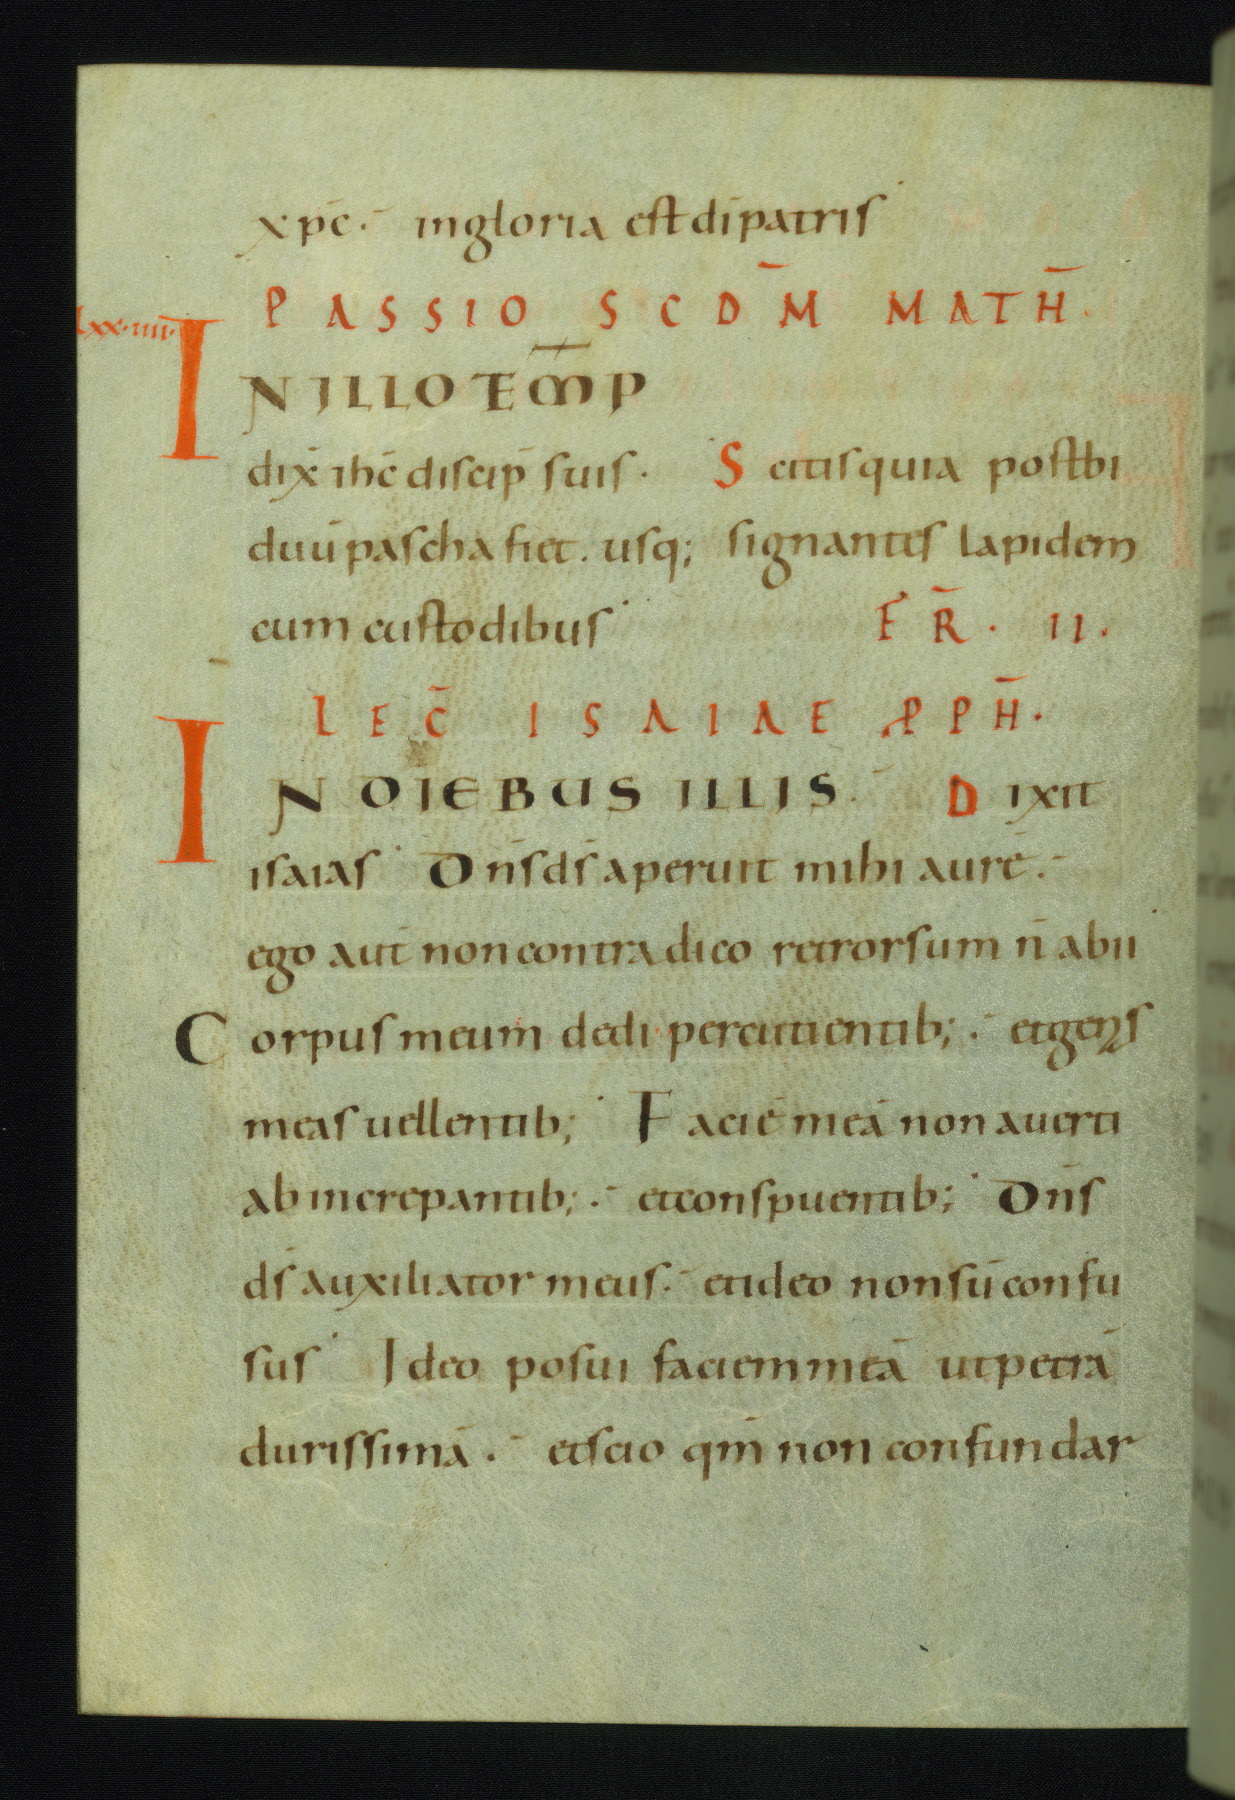 xp̄c· in gloria est dī patris
PASSIO SCDM̄ MATH̄.
lxx·iiii·
IN ILLO TEM̄P
dix̄ ih̄c discip̄ suis. Scitis quia post bi
duū pascha fiet. usq; signantes lapidem
cum custodibus FR̄. II.
LEC̄ ISAIAE PPH̄.
IN DIEBUS ILLIS. Dixit
isaias Dn̄s ds̄ aperuit mihi aurē.
ego aut̄ non contradico retrorsum n̄ abii
Corpus meum dedi percutientib; . et gens
meas uellentib; Faciē meā non auerti
ab increpantib; . et conspuentib; Dn̄s
ds̄ auxiliator meus. et ideo non sū confu
sus Ideo posui faciem meā ut petrā
durissimā. et scio qm̄ non confundar